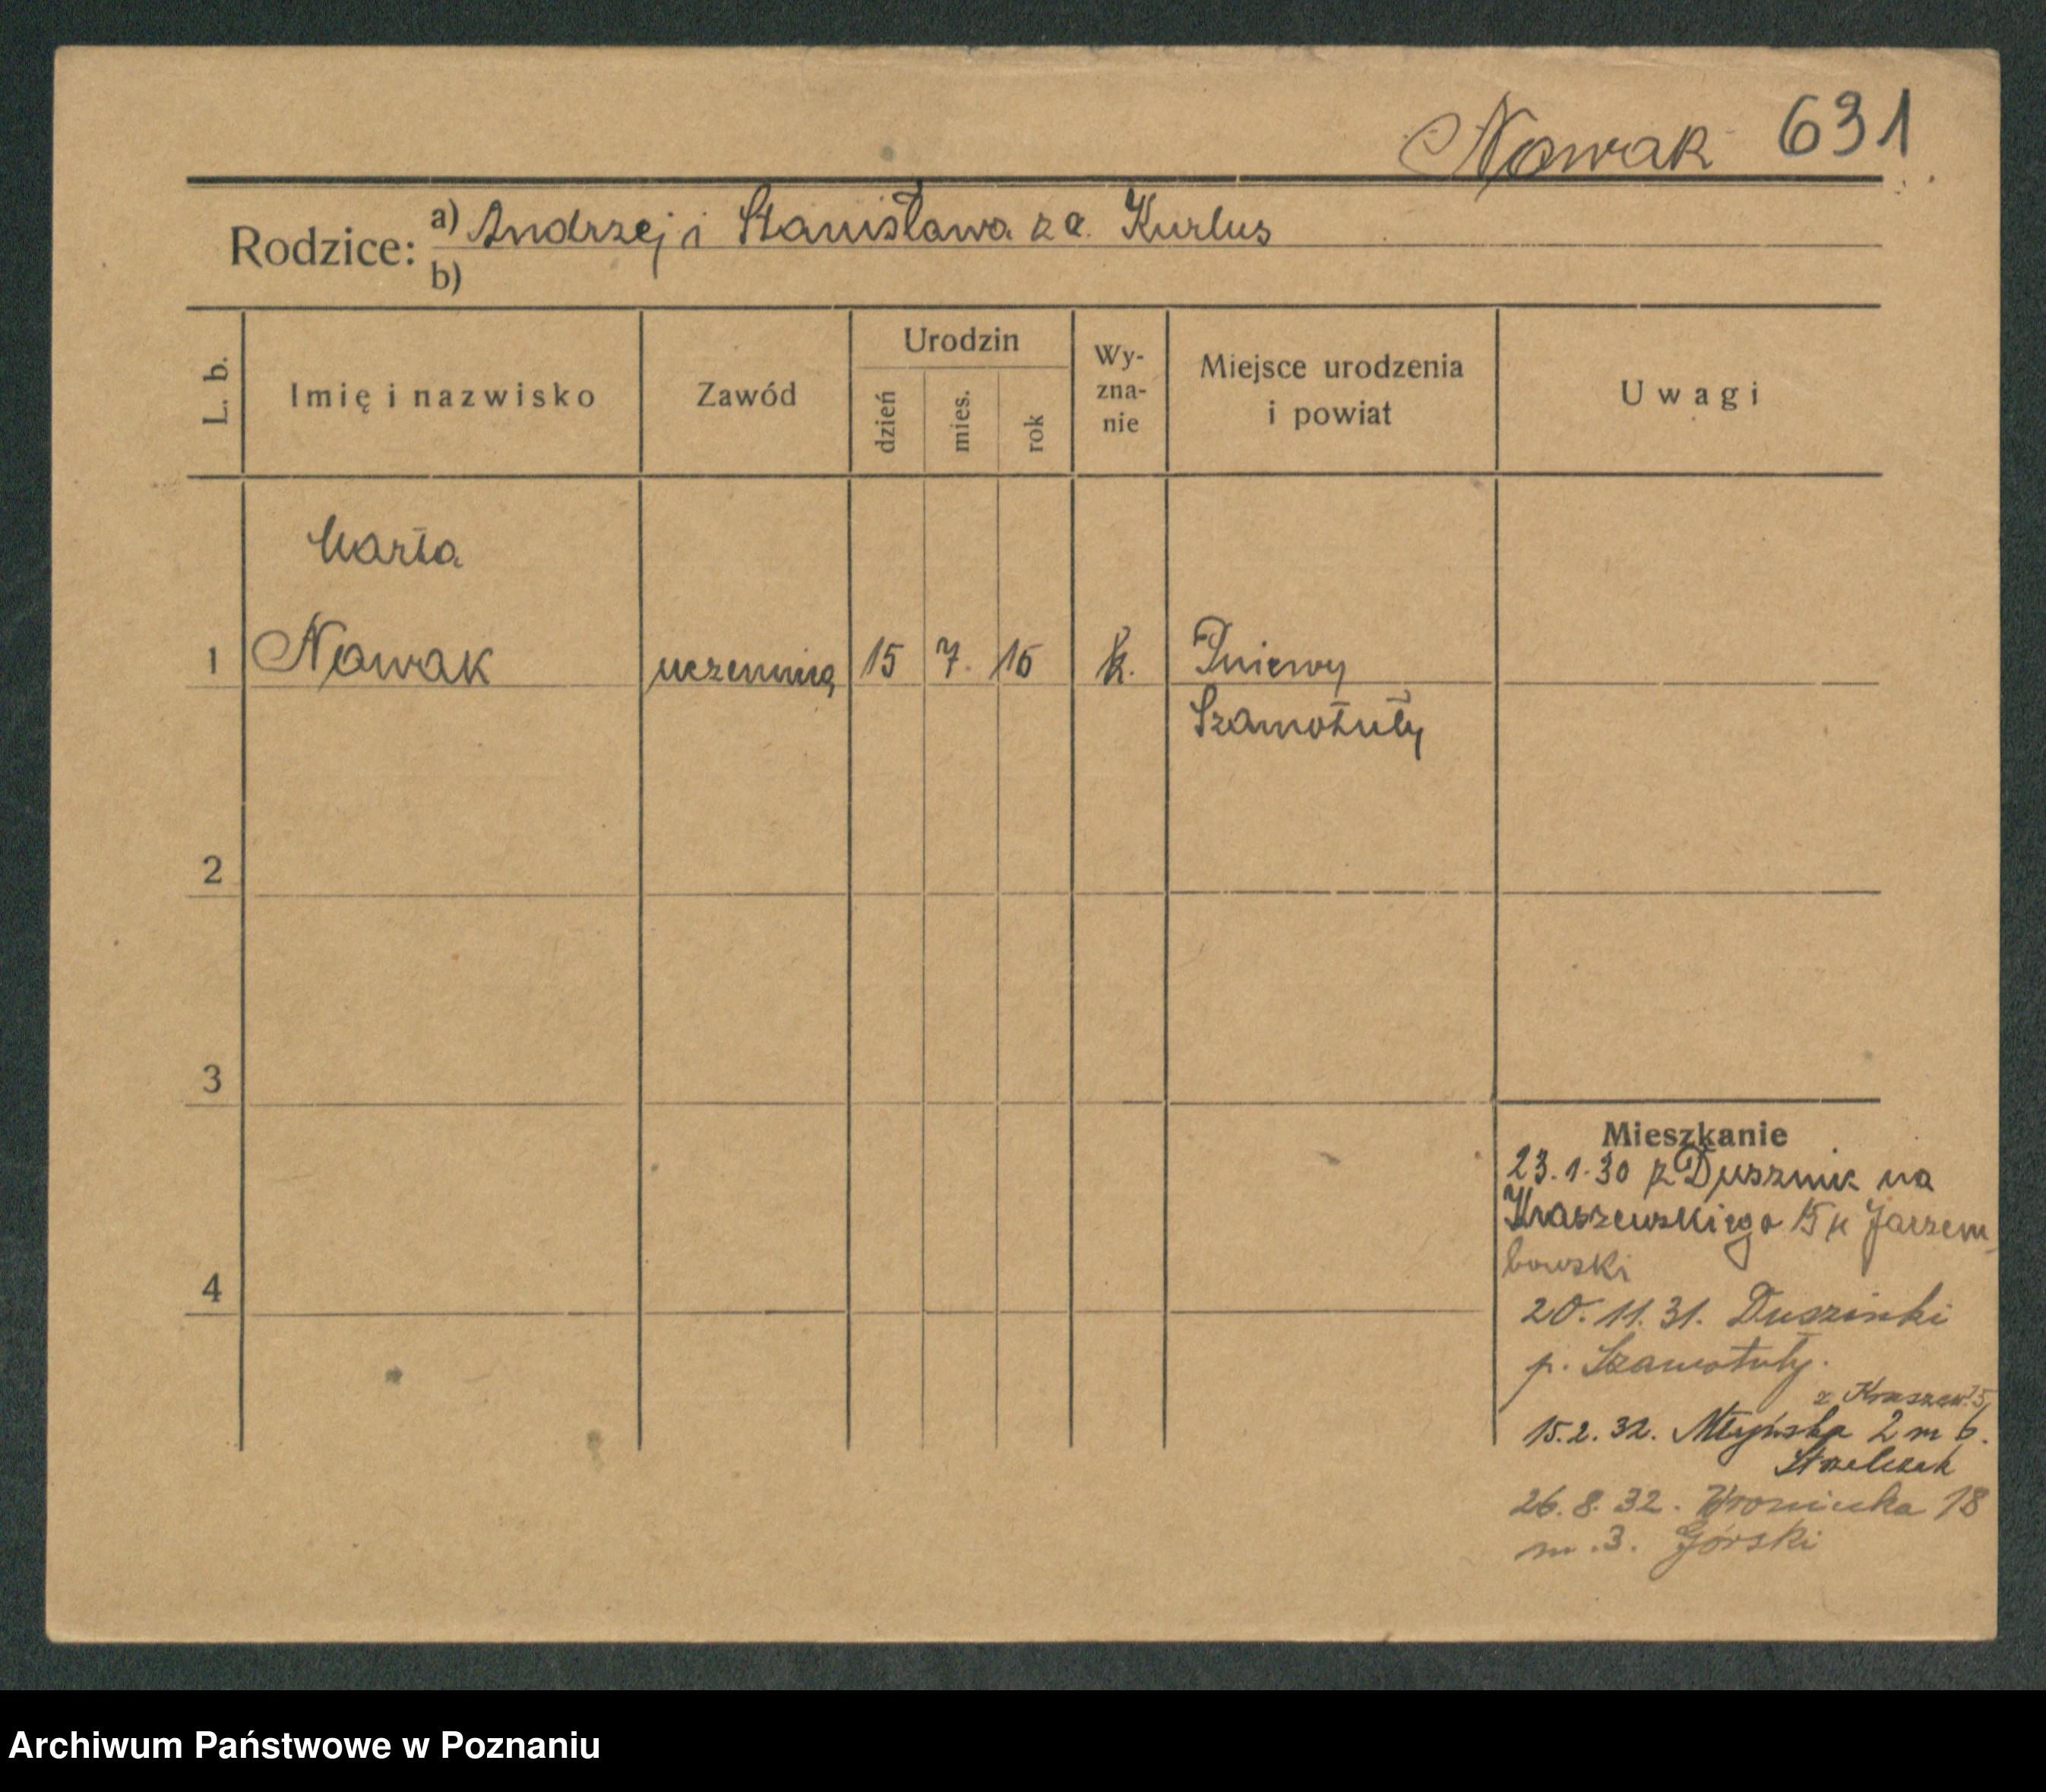 Nowak 631
Rodzice: a) Andrzej i Stanisława z d. Kurlus
b)
L. b. Imię i nazwisko Zawód Urodzin dzień mies. rok Wyznanie Miejsce urodzenia i powiat Uwagi
Marta
1 Nowak uczennica 15 7. 15 k. Pniewy
Szamotuły
2
3
4
Mieszkanie
23.1.30 z Dusznik na
Kraszewskiego 15 u Jarzem-
bowski
20.11.31. Duszniki
p. Szamotuły.
z Kraszew. 15,
15.2.32. Młyńska 2 m 6.
Strzelczak
26.8.32. Wroniecka 18
m.3. Górski
Archiwum Państwowe w Poznaniu